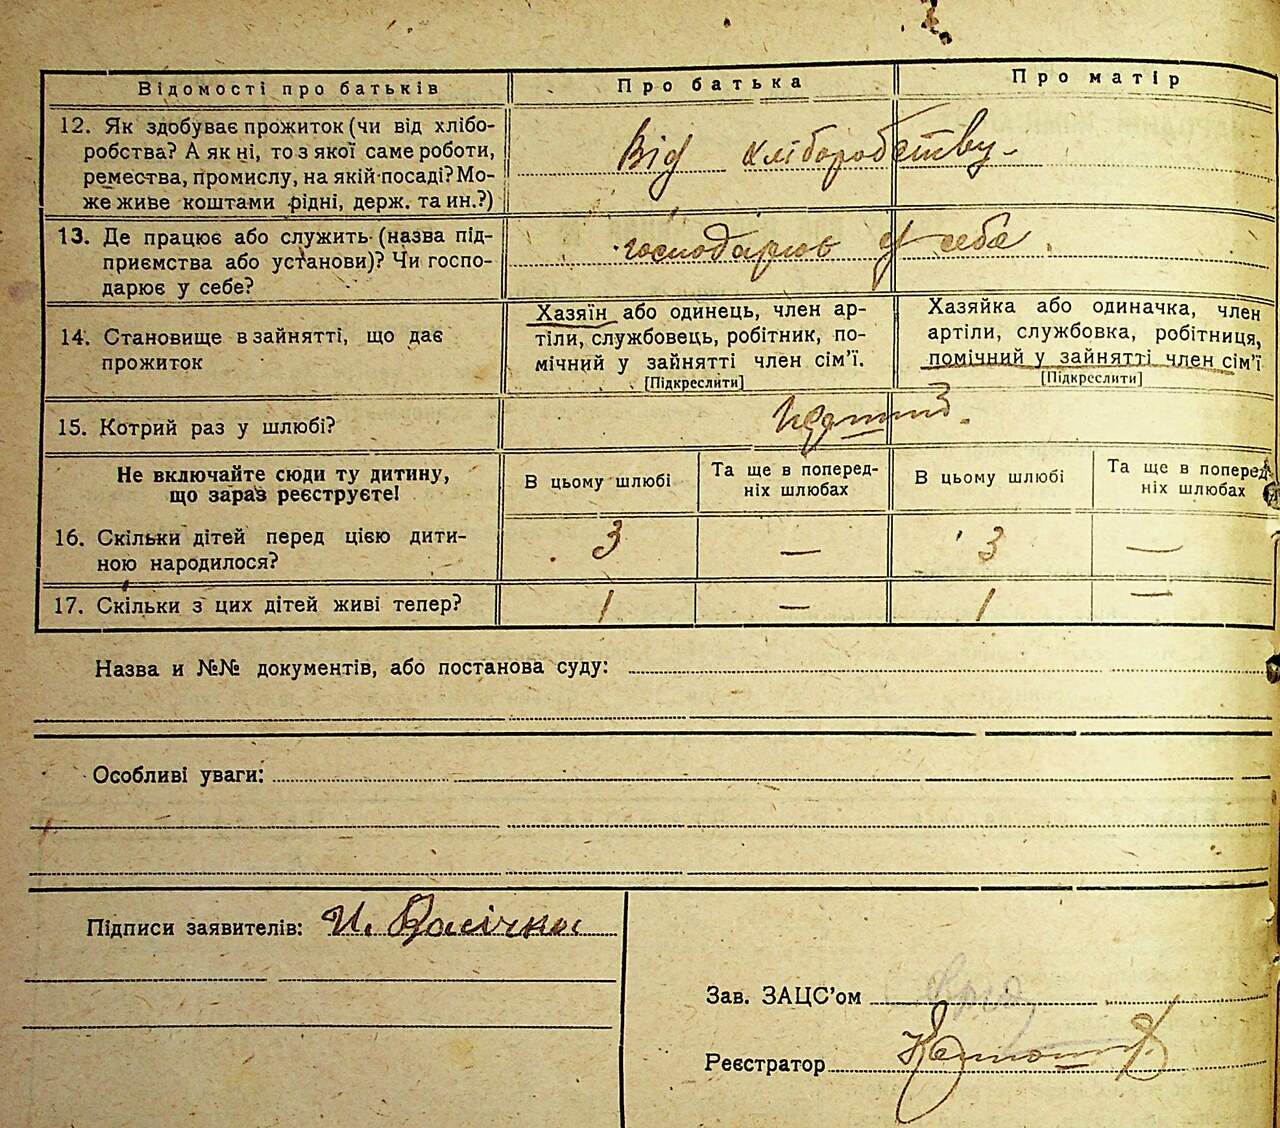 Відомості про батьків
Про батька
Про матір
12. Як здобуває прожиток (чи від хлібо-
робства? А як ні, то з якої саме роботи,
ремества, промислу, на якій посаді? Мо-
же живе коштами рідні, держ. та ин.?)
Від хліборобству
13. Де працює або служить (назва під-
приємства або установи)? Чи госпо-
дарює у себе?
господарює у себе
14. Становище в зайнятті, що дає
прожиток
Хазяїн або одинець, член ар-
тіли, службовець, робітник, по-
мічний у зайнятті член сім’ї.
[Підкреслити]
Хазяйка або одиначка, член
артіли, службовка, робітниця,
помічний у зайнятті член сім’ї
[Підкреслити]
15. Котрий раз у шлюбі?
Не включайте сюди ту дитину,
що зараз реєструєте!
В цьому шлюбі
Та ще в поперед-
ніх шлюбах
В цьому шлюбі
Та ще в поперед
ніх шлюбах
16. Скільки дітей перед цією дити-
ною народилося?
3 — 3 —
17. Скільки з цих дітей живі тепер?
1 — 1 —
Назва и №№ документів, або постанова суду:
Особливі уваги:
Підписи заявителів: И. Пасічник
Зав. ЗАЦС’ом
Реєстратор